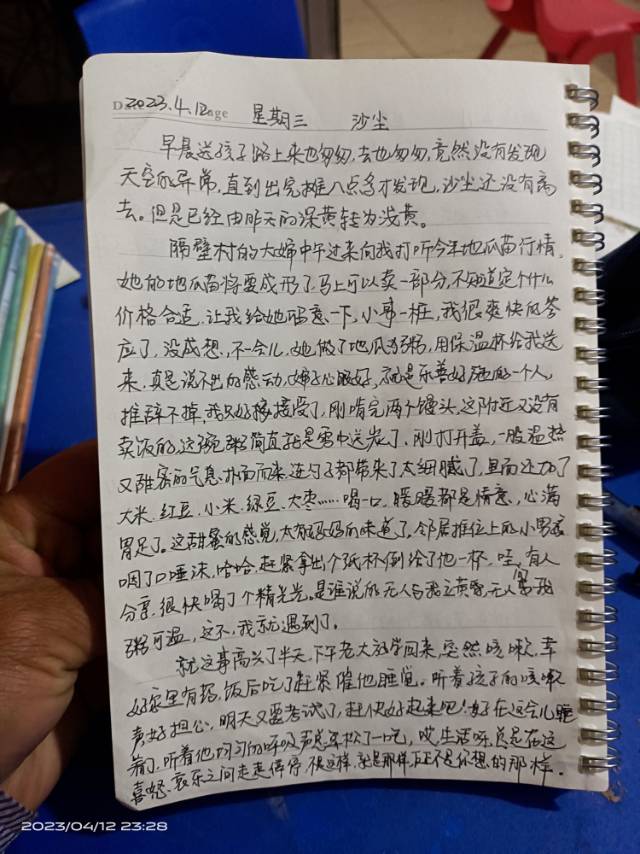 Date 2023.4.12 Page 星期三 沙尘
早晨送孩子路上来也匆匆,去也匆匆,竟然没有发现
天空的异常,直到出完摊八点多才发现,沙尘还没有离
去。但是已经由昨天的深黄转为浅黄。
隔壁村的大婶中午过来向我打听今年地瓜苗行情,
她的地瓜苗将要成形了,马上可以卖一部分,不知道定个什么
价格合适,让我给她留意一下,小事一桩,我很爽快的答
应了,没成想,不一会儿,她做了地瓜粥,用保温杯给我送
来,真是说不出的感动,婶子心眼好,就是乐善好施的一个人,
推辞不掉,我只好接受了,刚啃完两个馒头,这附近又没有
卖饭的,这碗粥简直就是雪中送炭了,刚打开盖,一股温热
又甜蜜的气息扑面而来,连勺子都带来了,太细腻了,里面还加了
大米、红豆、小米、绿豆、大枣……喝一口,暖暖都是情意,心满
胃足了。这甜蜜的感觉,太有妈妈的味道了,邻居摊位上的小男孩
咽了口唾沫,哈哈,赶紧拿出个纸杯倒给了他一杯,哇,有人
分享,很快喝了个精光光。是谁说的无人与我立黄昏,无人问我
粥可温,这不,我就遇到了。
就这事高兴了半天,下午老大放学回来,突然咳嗽,幸
好家里有药,饭后吃了赶紧催他睡觉。听着孩子的咳嗽
声好担心,明天又要考试了,赶快好起来吧!好在这会儿睡
着了,听着他均匀的呼吸声总算松了一口气,哎,生活呀,总是在这
喜怒哀乐之间走走停停,不是这样,就是那样,反正不是你想的那样。
2023/04/12 23:28